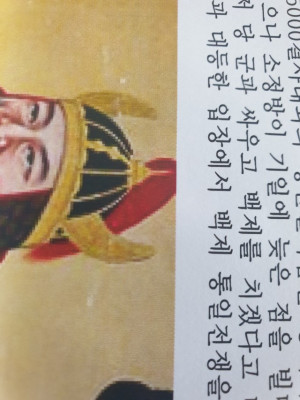 5000결사대와의
으나 소정방이 기일에 늦은 점을 빌
저 당 군과 싸우고 백제를 치겠다고
과 대등한 입장에서 백제 통일전쟁을